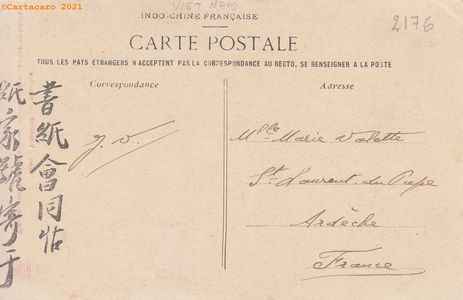 ©Cartacaro 2021
VIET NAM
INDO-CHINE FRANÇAISE
2176
CARTE POSTALE
TOUS LES PAYS ETRANGERS N'ACCEPTENT PAS LA CORRESPONDANCE AU RECTO, SE RENSEIGNER A LA POSTE
Correspondance
Adresse
書紙會同怗
紙家號寄于
J. V.
Mlle Marie Valette
St Laurent du Pape
Ardèche
France